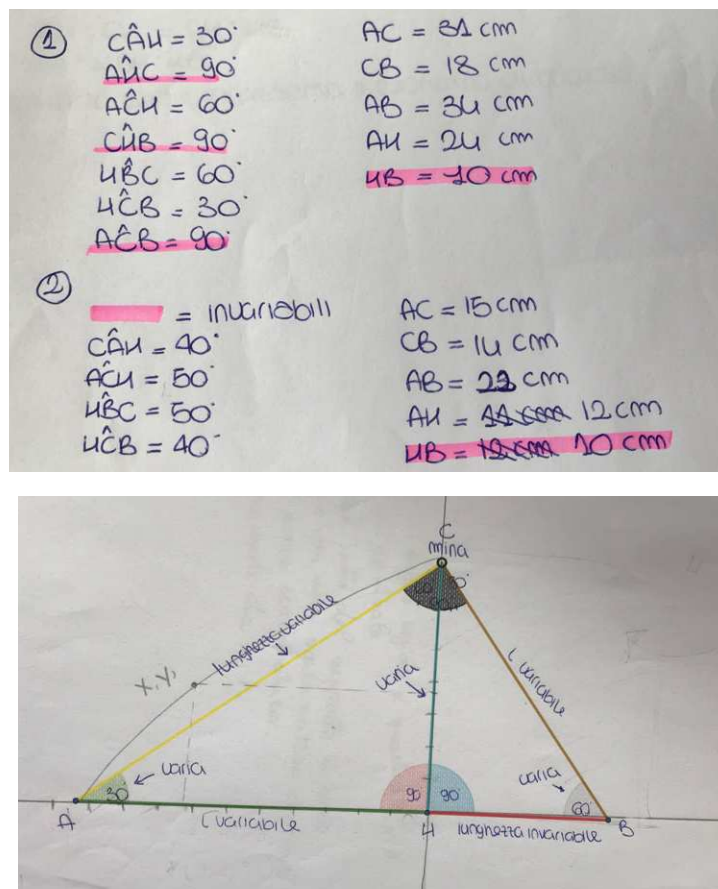 1
CÂH = 30°
AĤC = 90°
AĈH = 60°
CĤB = 90°
HB̂C = 60°
HĈB = 30°
AĈB = 90°
AC = 31 cm
CB = 18 cm
AB = 34 cm
AH = 24 cm
HB = 10 cm
2
= invariabili
CÂH = 40°
AĈH = 50°
HB̂C = 50°
HĈB = 40°
AC = 15 cm
CB = 14 cm
AB = 22 cm
AH = 11 cm 12 cm
HB = 12 cm 10 cm
C
mina
lunghezza variabile
X, Y,
varia
L variabile
varia
30°
varia
90 90°
60°
A L variabile H lunghezza invariabile B